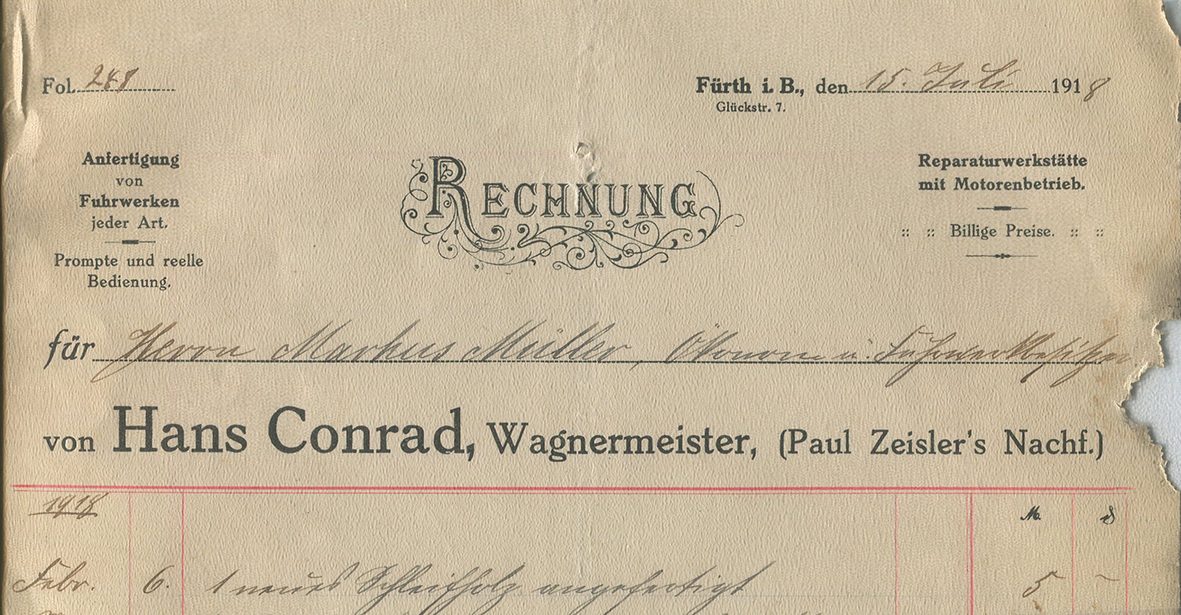 Fol. 248
Fürth i. B., den 15. Juli 1918
Glückstr. 7.
Anfertigung
von
Fuhrwerken
jeder Art.
Prompte und reelle
Bedienung.
RECHNUNG
Reparaturwerkstätte
mit Motorenbetrieb.
:: :: Billige Preise. :: ::
für Herrn Markus Müller, Ökonom u. Fuhrwerkbesitzer
von Hans Conrad, Wagnermeister, (Paul Zeisler's Nachf.)
1918
M.
Febr. 6. 1 neues Schleifholz angefertigt 5 –